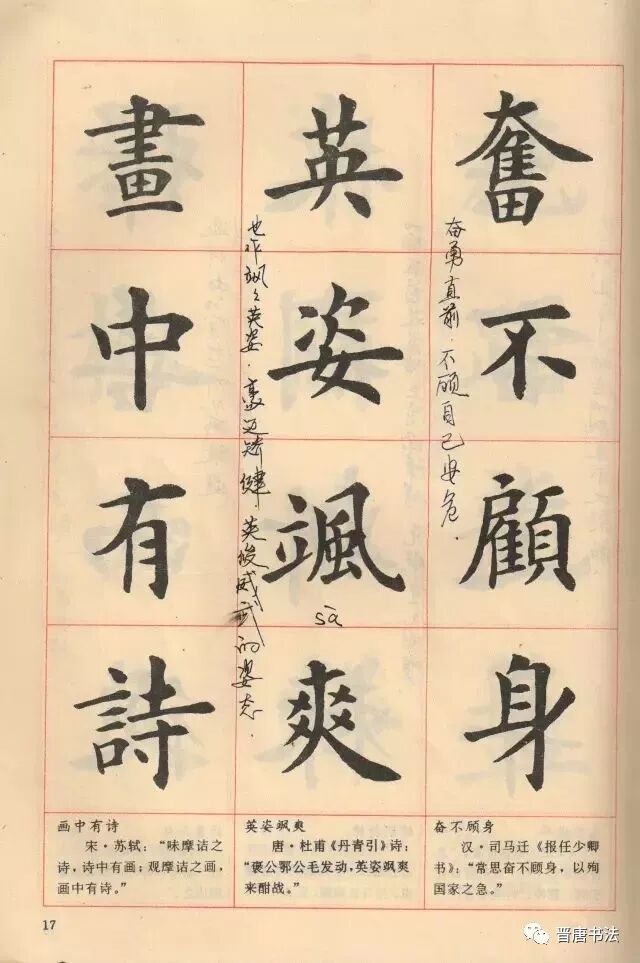 奮不顧身
奋勇直前．不顾自己安危．
英姿颯爽
sà
也作飒飒英姿．豪迈矫健 英俊威武的姿态．
畫中有詩
奋不顾身
汉·司马迁《报任少卿
书》：“常思奋不顾身，以殉
国家之急。”
英姿飒爽
唐·杜甫《丹青引》诗：
“褒公鄂公毛发动，英姿飒爽
来酣战。”
画中有诗
宋·苏轼：“味摩诘之
诗，诗中有画；观摩诘之画，
画中有诗。”
17
晋唐书法